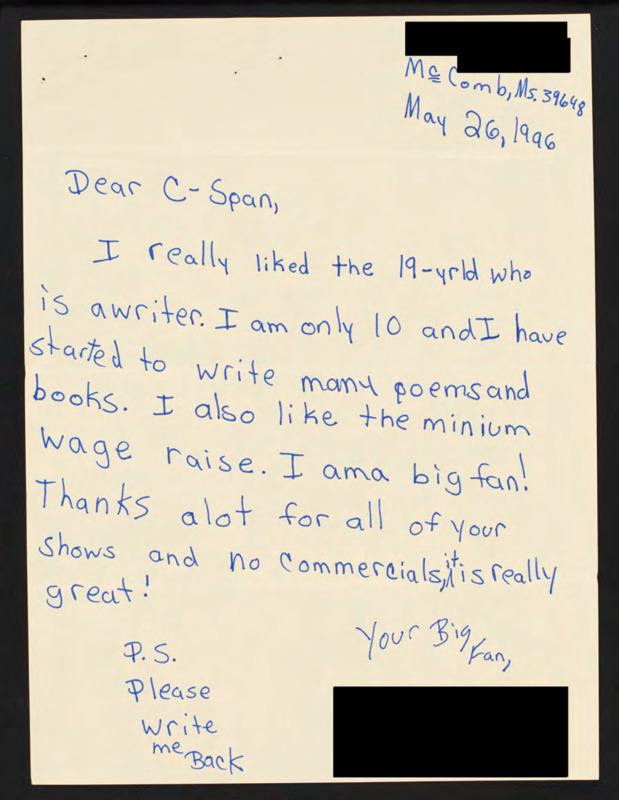 Mc Comb, Ms. 39648
May 26, 1996
Dear C-Span,
I really liked the 19-yrld who
is awriter. I am only 10 and I have
started to write many poems and
books. I also like the minium
wage raise. I am a big fan!
Thanks alot for all of your
shows and no commercials, it is really
great!
Your Big
Fan,
P.S.
Please
write
me Back